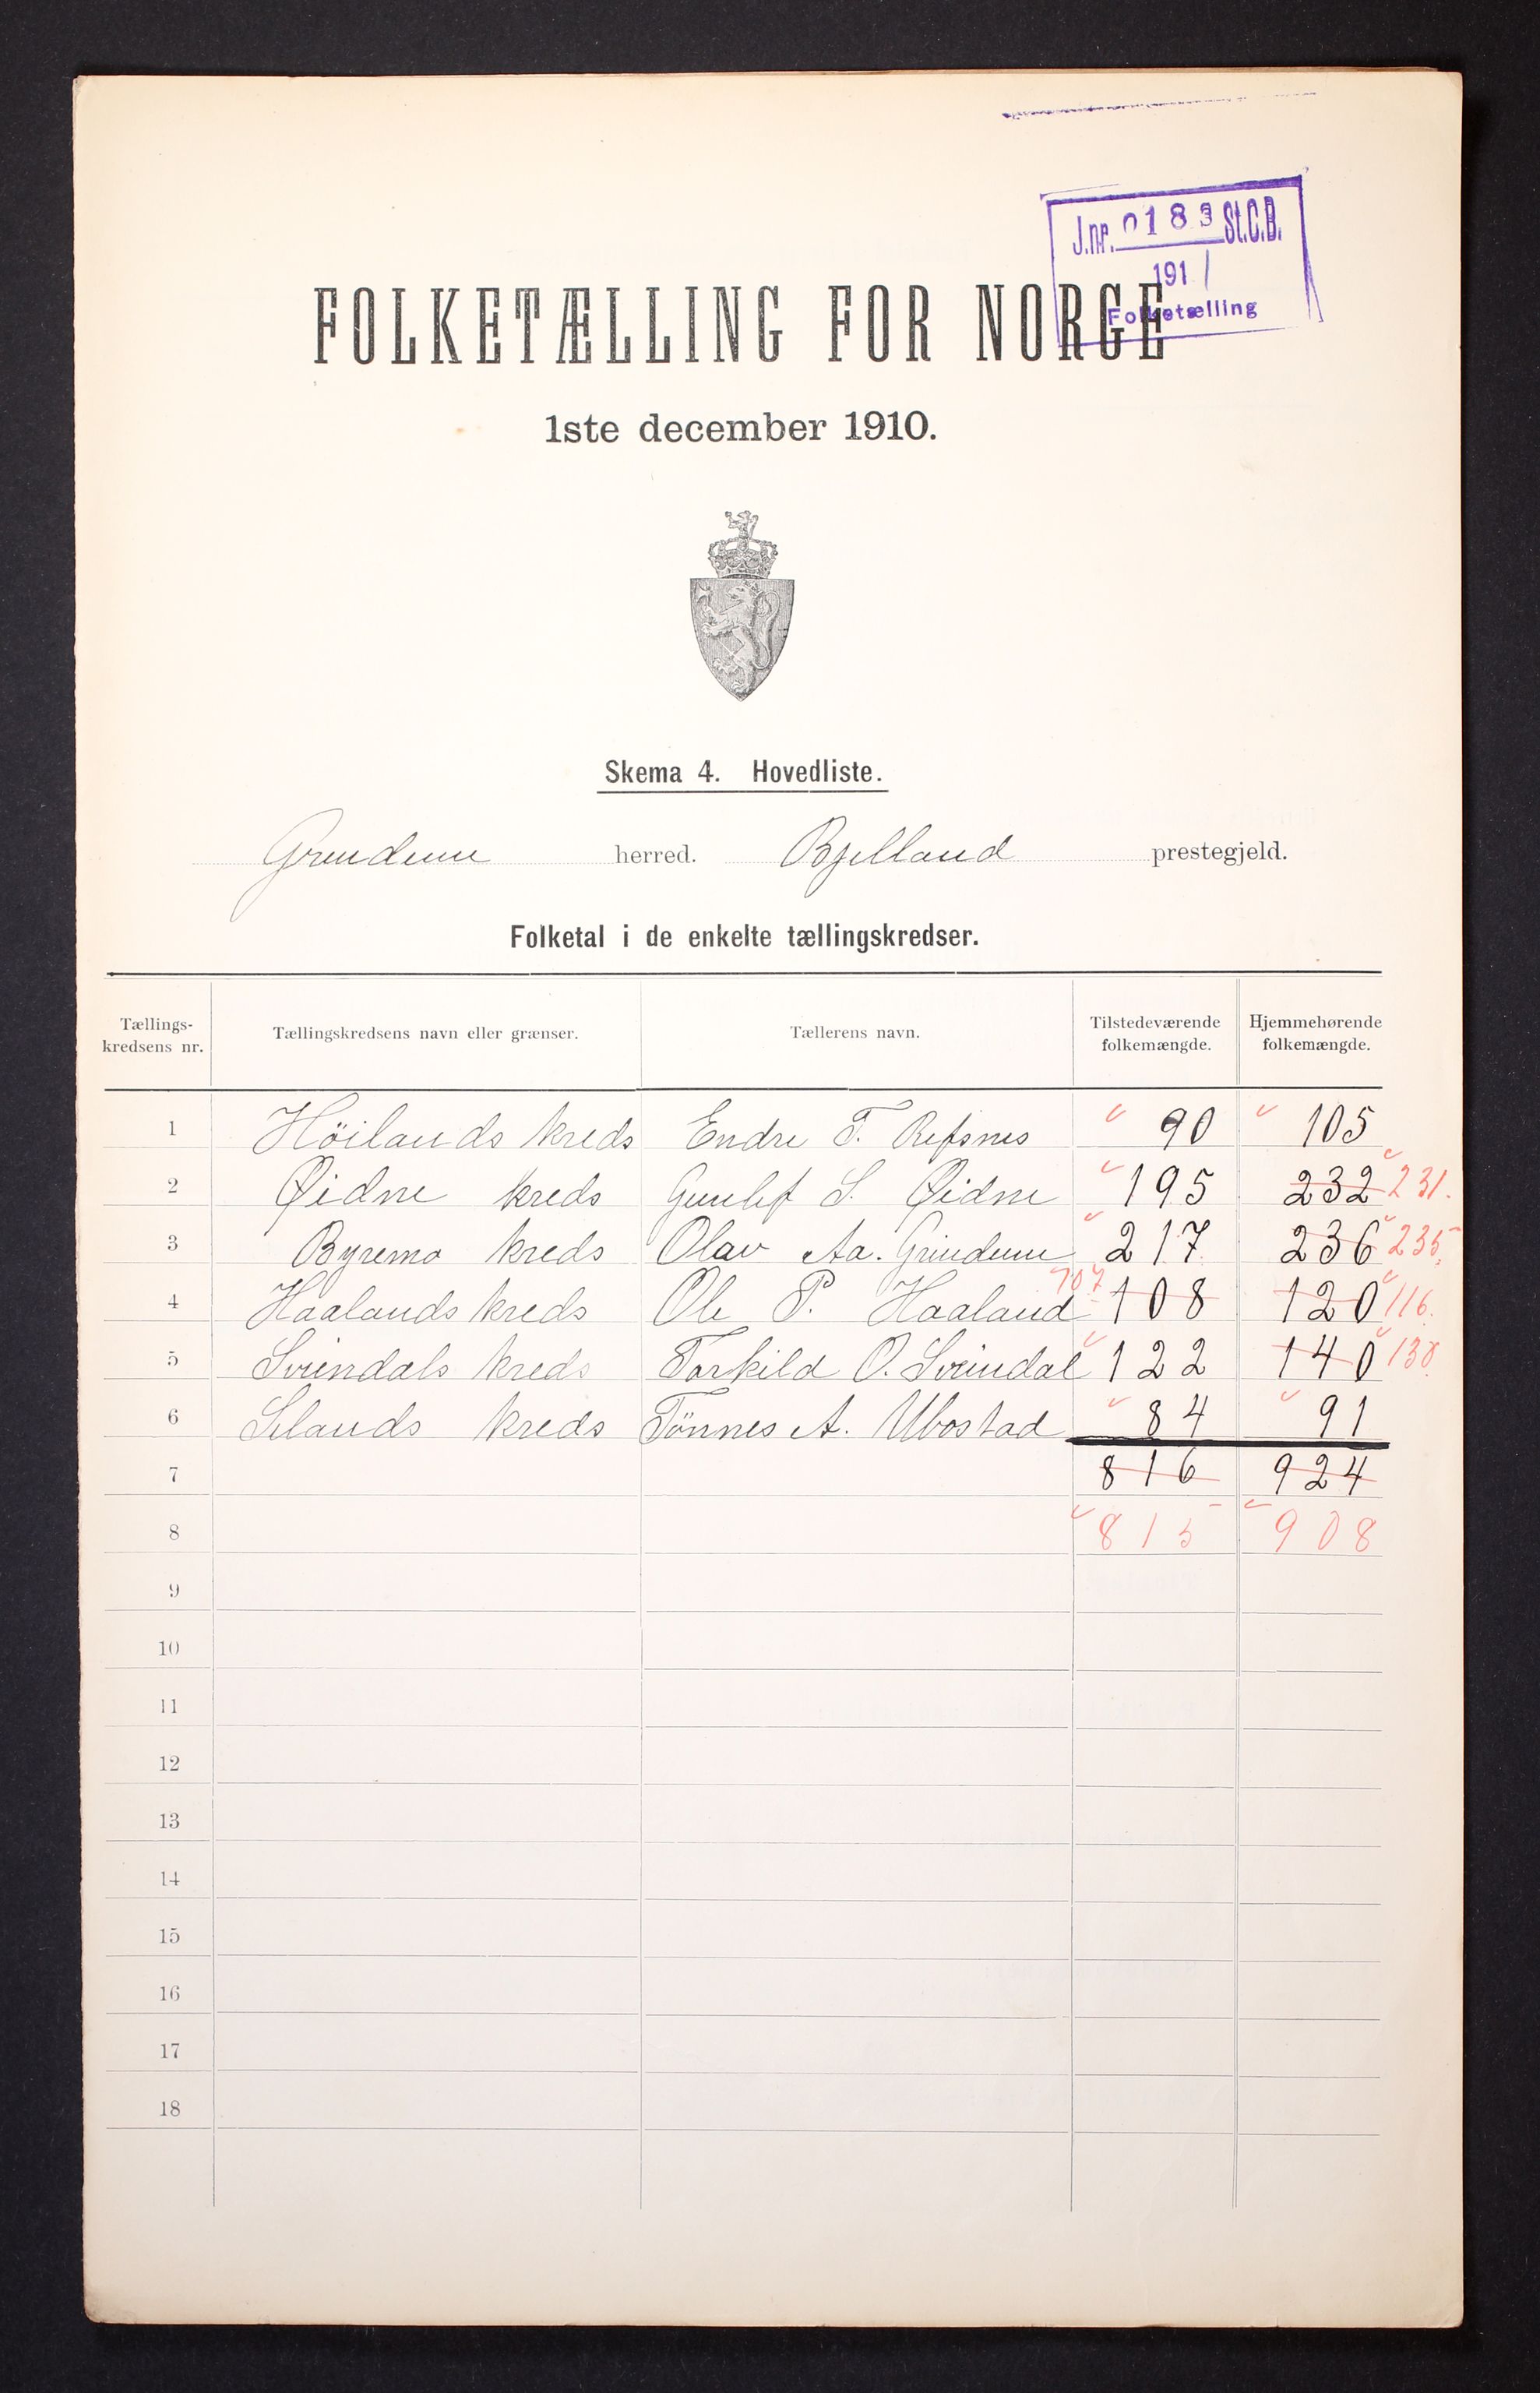 J.nr. 0183 St.C.B.
191/
Folketælling
FOLKETÆLLING FOR NORGE
1ste december 1910.
Skema 4. Hovedliste.
Grindum herred. Bjelland prestegjeld.
Folketal i de enkelte tællingskredser.
Tællings-kredsens nr. Tællingskredsens navn eller grænser. Tællerens navn. Tilstedeværende folkemængde. Hjemmehørende folkemængde.
1 Höilands kreds Endre T. Refsnes 90 105
2 Øidne kreds Gunlef S. Øidne 195 232 231.
3 Byremo kreds Olav Aa. Grindum 217 236 235.
4 Haalands kreds Ole P. Haaland 107 108 120 116.
5 Sveindals kreds Torkild O. Sveindal 122 140 130
6 Selands kreds Tönnes A. Ubostad 84 91
7 816 924
8 815 908
9
10
11
12
13
14
15
16
17
18